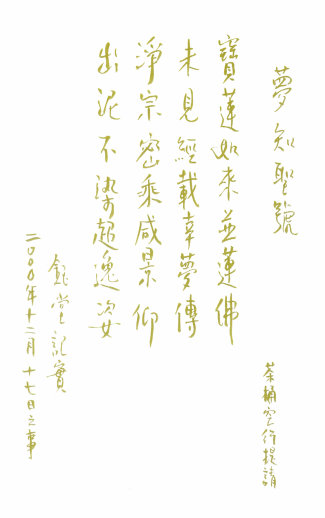 夢知聖號
寶蓮如來並蓮佛
未見經載幸夢傳
淨宗密乘咸景仰
出泥不染超逸姿
鈺堂記實
二000年十二月十七日之事
茶桶空行提請